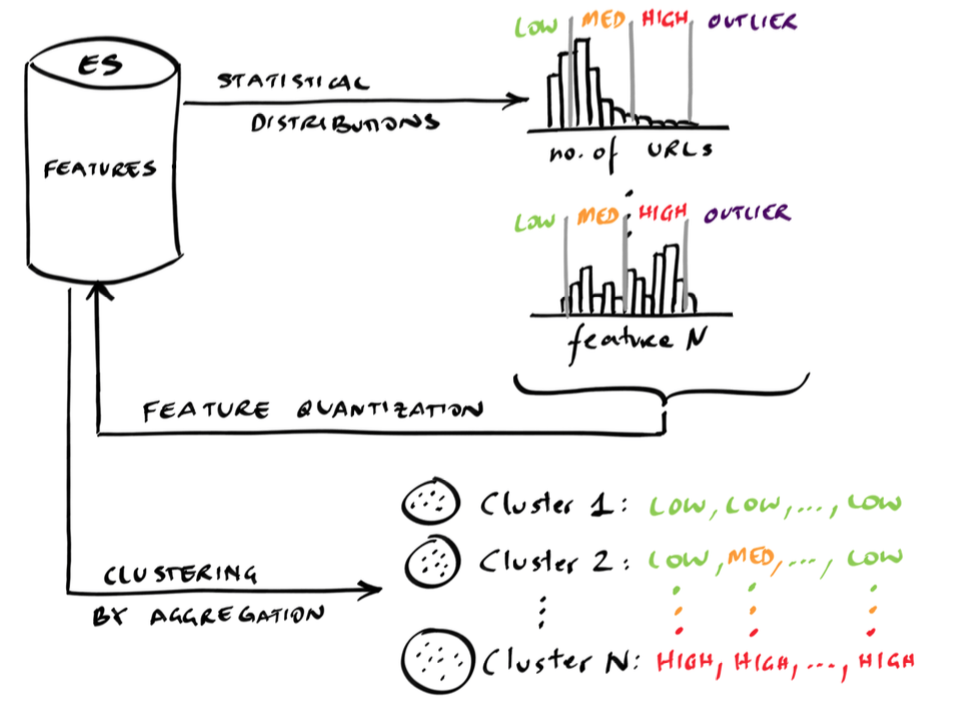 ES
FEATURES
STATISTICAL
DISTRIBUTIONS
LOW MED HIGH OUTLIER
no. of URLs
LOW MED HIGH OUTLIER
feature N
FEATURE QUANTIZATION
CLUSTERING
BY AGGREGATION
Cluster 1: LOW, LOW, ..., LOW
Cluster 2: LOW, MED, ..., LOW
Cluster N: HIGH, HIGH, ..., HIGH